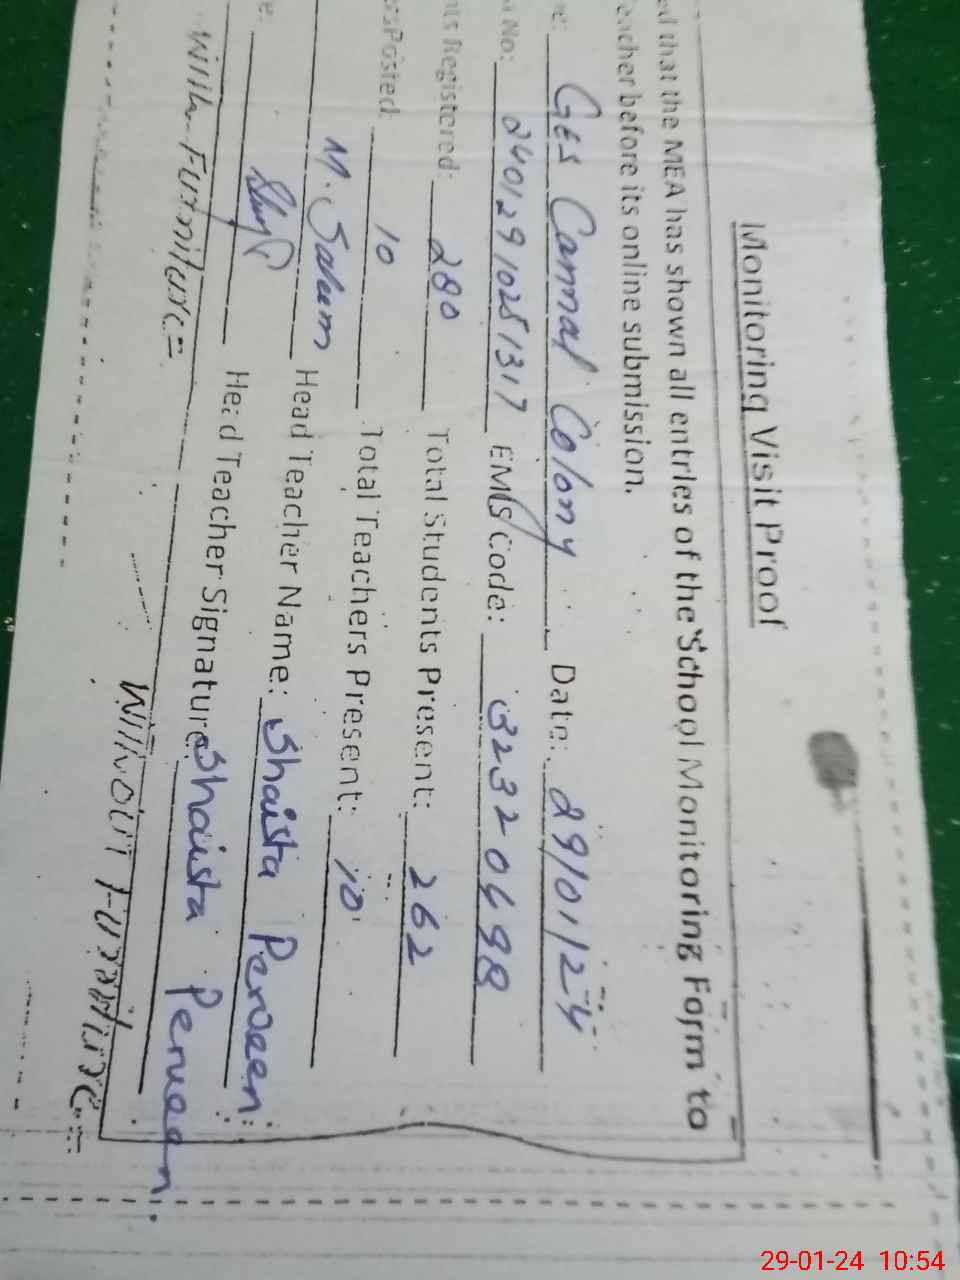 Monitoring Visit Proof
ed that the MEA has shown all entries of the School Monitoring Form to
eacher before its online submission.
e: GES Cannal Colony Date: 29/01/24
No: 24012910251317 EMIS Code: 32320498
nts Registered: 280 Total Students Present: 262
s Posted: 10 Total Teachers Present: 10
M. Saleem Head Teacher Name: Shaista Perveen
e: Head Teacher Signature: Shaista Perveen.
With Furniture= Without Furniture=
29-01-24 10:54